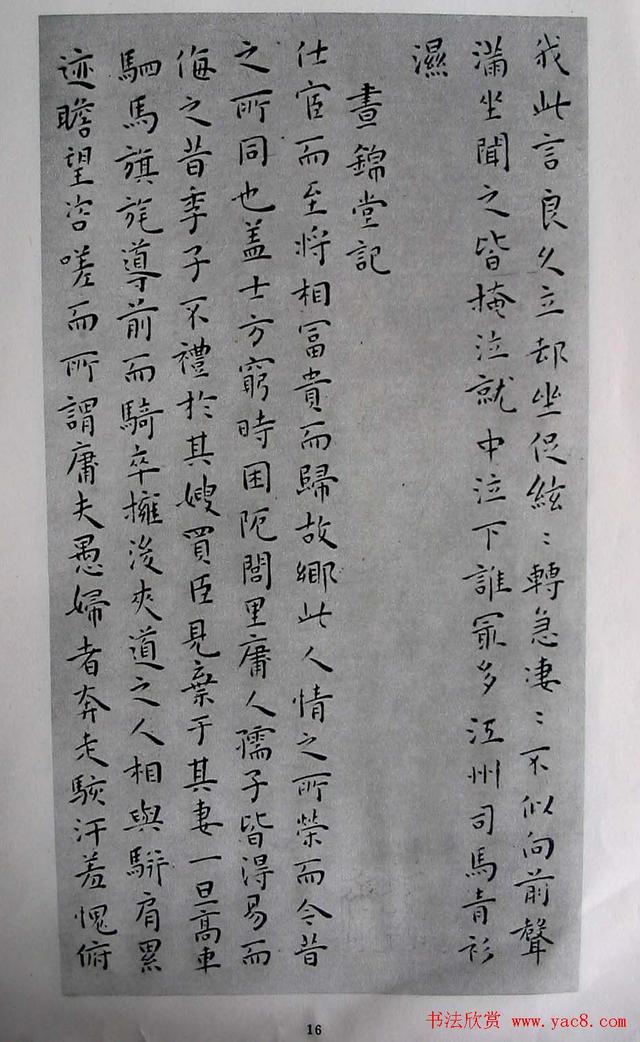 我此言良久立却坐促絃〻轉急凄〻不似向前聲
滿坐聞之皆掩泣就中泣下誰冣多江州司馬青衫
濕
晝錦堂記
仕宦而至将相冨貴而歸故鄉此人情之所榮而今昔
之所同也盖士方窮時困阨閭里庸人孺子皆得易而
侮之昔季子不禮於其嫂買臣見棄于其妻一旦高車
駟馬旗旄導前而騎卒擁後夾道之人相與駢肩累
迹瞻望咨嗟而所謂庸夫愚婦者奔走駭汗羞愧俯
16
书法欣赏 www.yac8.com